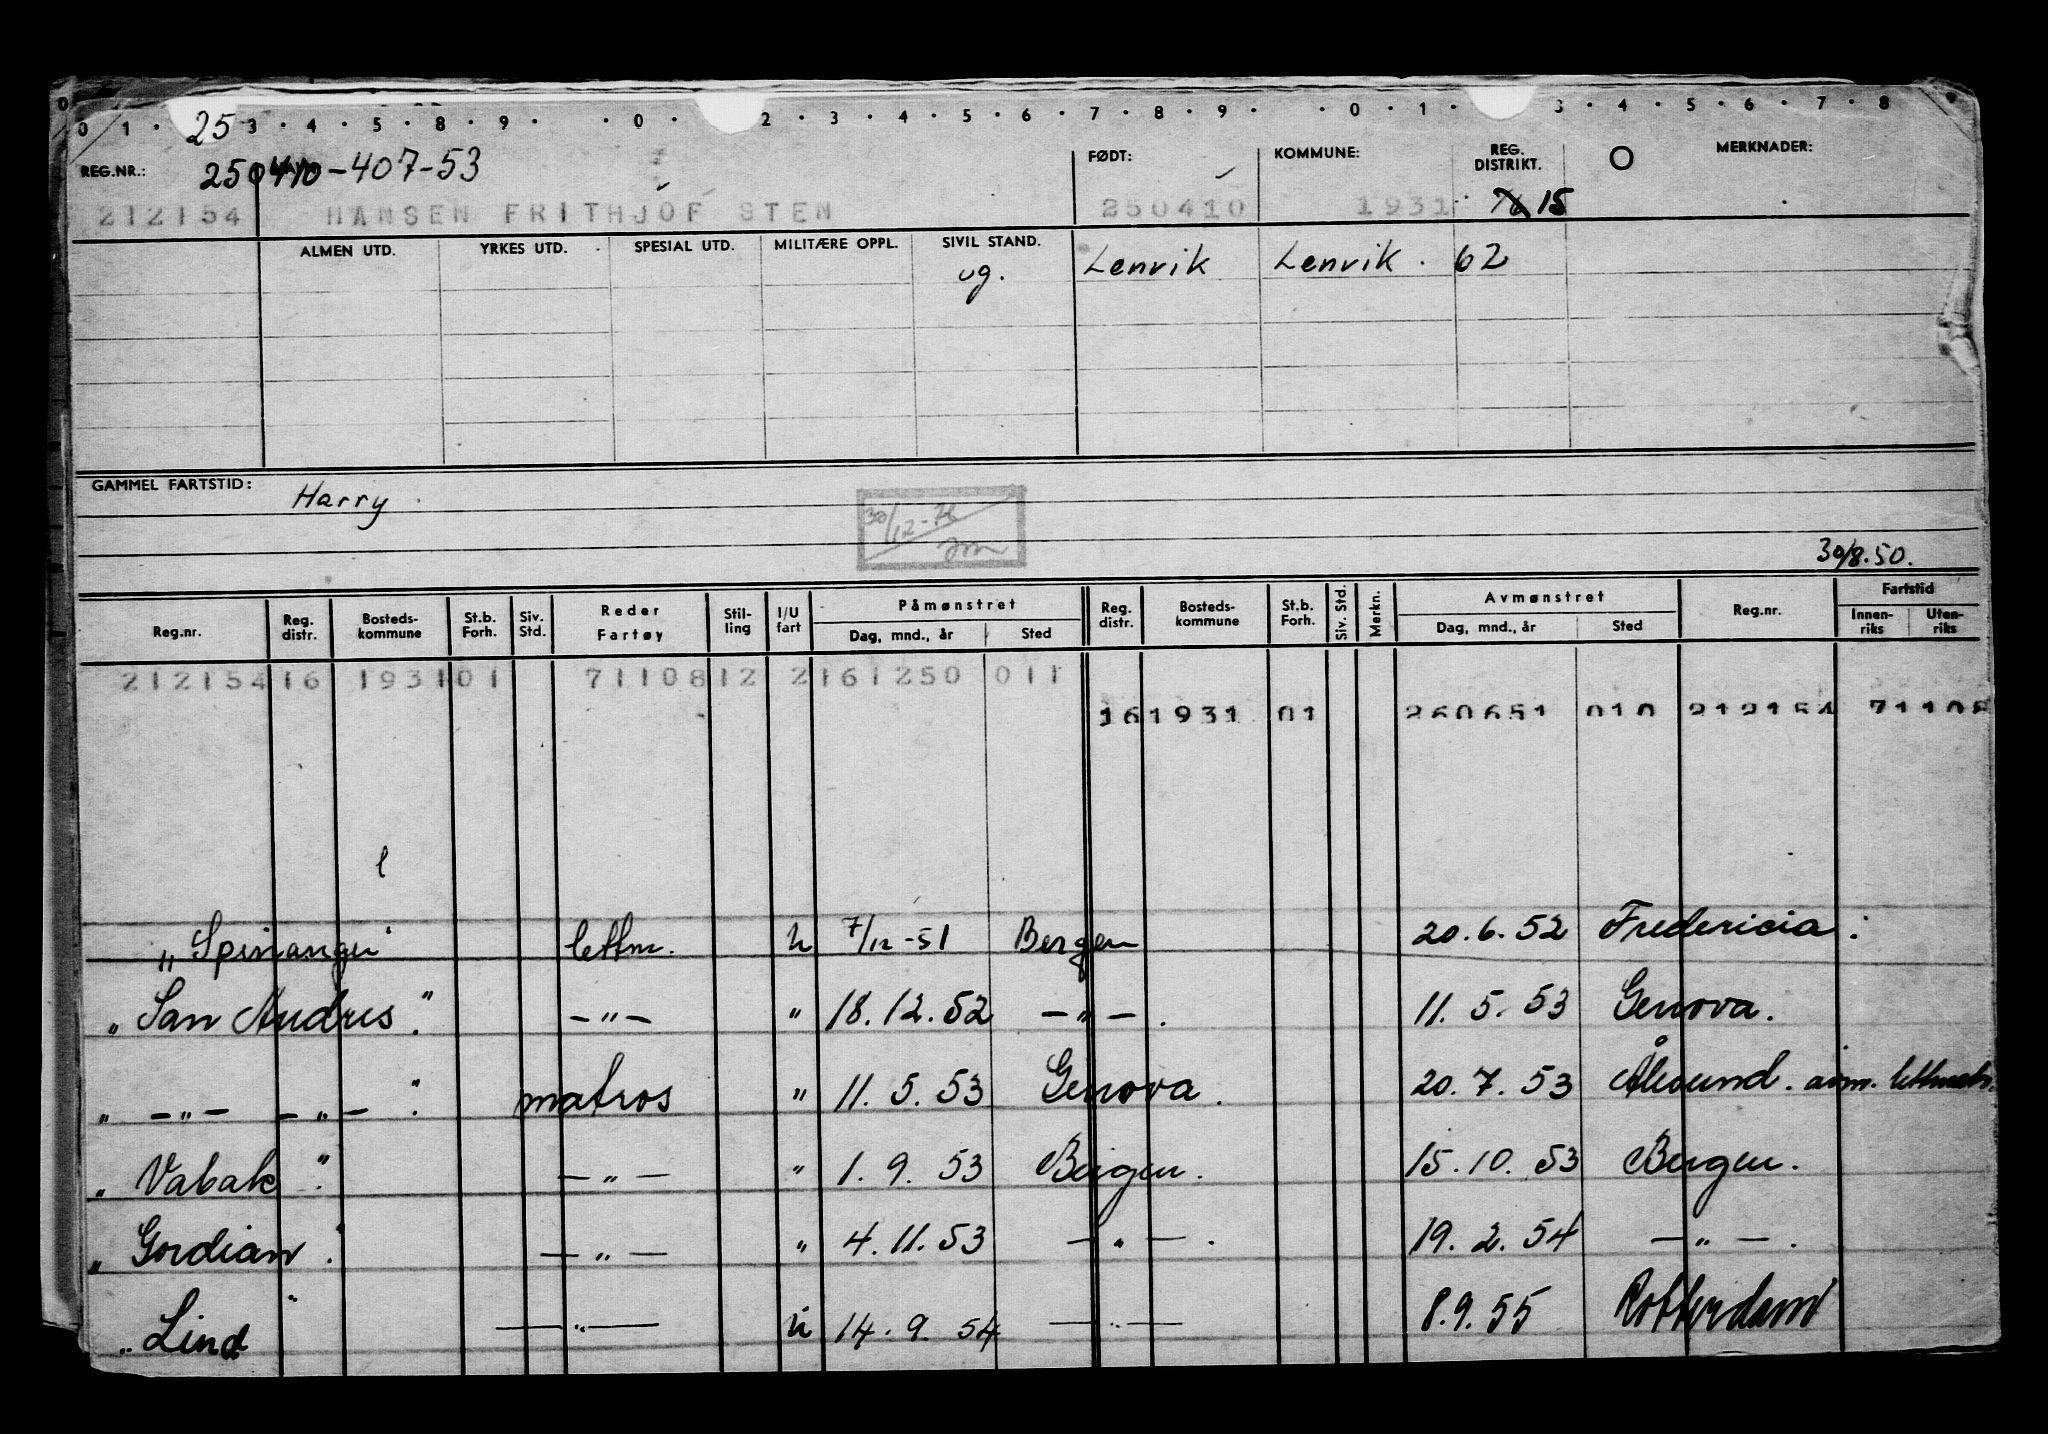 0 1 · 25 3 · 4 · 5 · 8 · 9 · · 0 · 2 · 3 · 4 · 5 · 6 · 7 · 8 · 9 · · 0 · 1 · 3 · 4 · 5 · 6 · 7 · 8 9
REG.NR.: 250410-407-53 FØDT: KOMMUNE: REG. DISTRIKT. MERKNADER:
212154 HANSEN FRITHJOF STEN 250410 1931 15
ALMEN UTD. YRKES UTD. SPESIAL UTD. MILITÆRE OPPL. SIVIL STAND.
ug. Lenvik Lenvik . 62
GAMMEL FARTSTID: Harry
30/12-76
30/8.50.
Reg.nr. Reg. distr. Bosteds-kommune St.b. Forh. Siv. Std. Reder Fartøy Stil-ling I/U fart Påmønstret Dag, mnd., år Sted Reg. distr. Bosteds-kommune St.b. Forh. Siv. Std. Merkn. Avmønstret Dag, mnd., år Sted Reg.nr. Fartstid Innen-riks Uten-riks
212154 16 1931 01 71108 12 2 161250 011
16 1931 01 260651 010 212154 71108
l
„Spinanger" lettm. U 7/12-51 Bergen 20.6.52 Fredericia.
„San Andres." -"- " 18.12.52 -"-. 11.5.53 Genova.
„ -"- -"- ." matros " 11.5.53 Genova. 20.7.53 Ålesund. avm. lettmatr.
„Vabak." -"- " 1.9.53 Bergen. 15.10.53 Bergen.
„Gordian." -"- " 4.11.53 -"-. 19.2.54 -"-.
„Lind" -"- U 14.9.54 -"- 8.9.55 Rotterdam